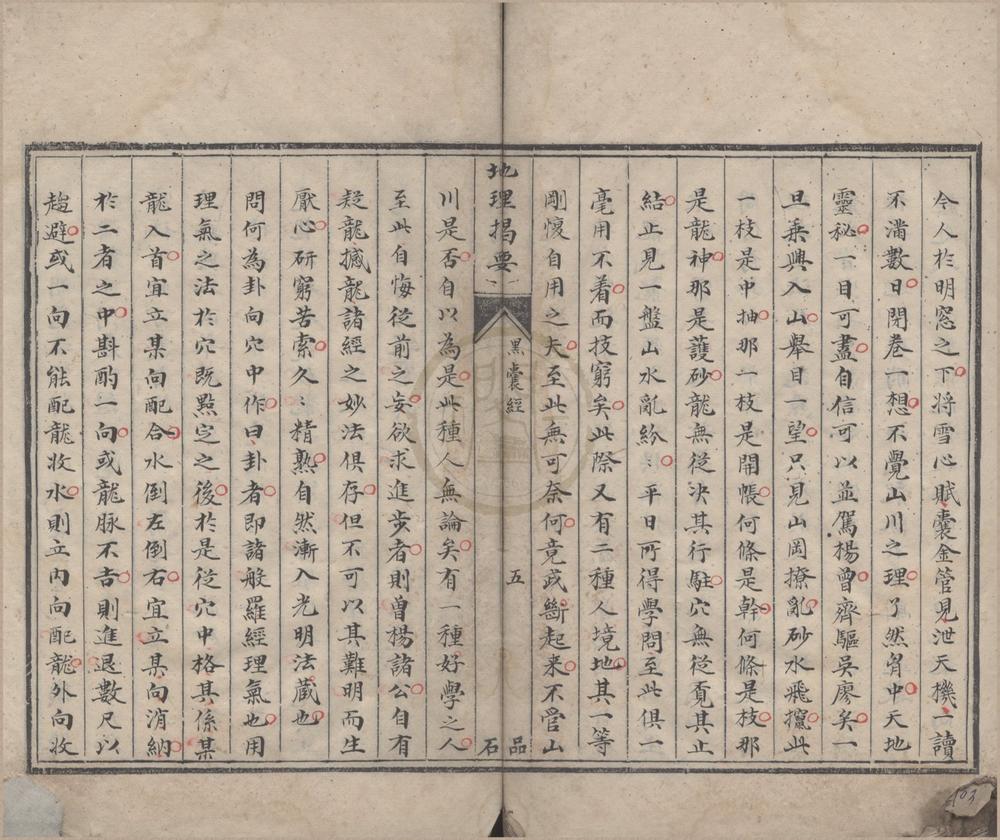 今人於明窓之下将雪心賦囊金管見泄天機一讀
不滿數日閉卷一想不覺山川之理了然胷中天地
靈秘一目可盡自信可以並駕楊曾齊驅吳廖矣一
旦乗興入山舉目一望只見山岡撩亂砂水飛攛此
一枝是中抽那一枝是開帳何條是幹何條是枝那
是龍神那是護砂龍無從決其行駐穴無從覔其止
結止見一盤山水亂紛〻平日所得學問至此俱一
毫用不着而技窮矣此際又有二種人境地其一等
剛愎自用之夫至此無可奈何竟武斷起来不管山
地理揭要
黒囊經
五
品石
川是否自以為是此種人無論矣有一種好學之人
至此自悔從前之妄欲求進步者則曾楊諸公自有
疑龍撼龍諸經之妙法俱存但不可以其難明而生
厭心研窮苦索久〻精熟自然漸入光明法蔵也
問何為卦向穴中作曰卦者即諸般羅經理氣也用
理氣之法於穴既點定之後於是從穴中格其係某
龍入首宜立某向配合水倒左倒右宜立某向消納
於二者之中斟酌一向或龍脉不吉則進退數尺以
趨避或一向不能配龍收水則立内向配龍外向收
103